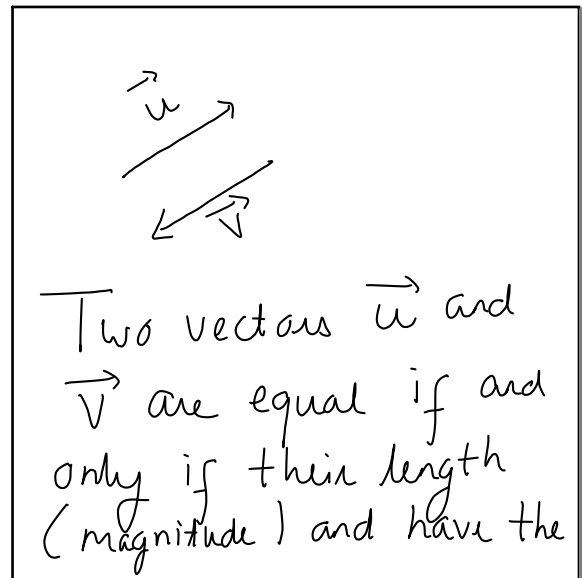 u
v
Two vectors u and
v are equal if and
only if their length
(magnitude) and have the